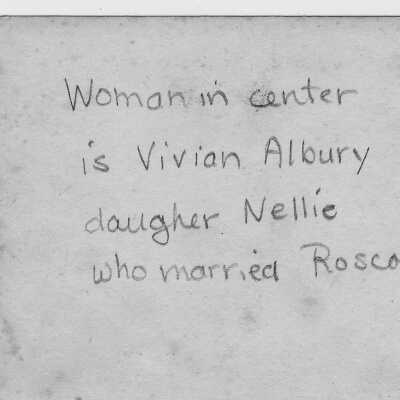 Woman in center
is Vivian Albury
daugher Nellie
who married Rosco